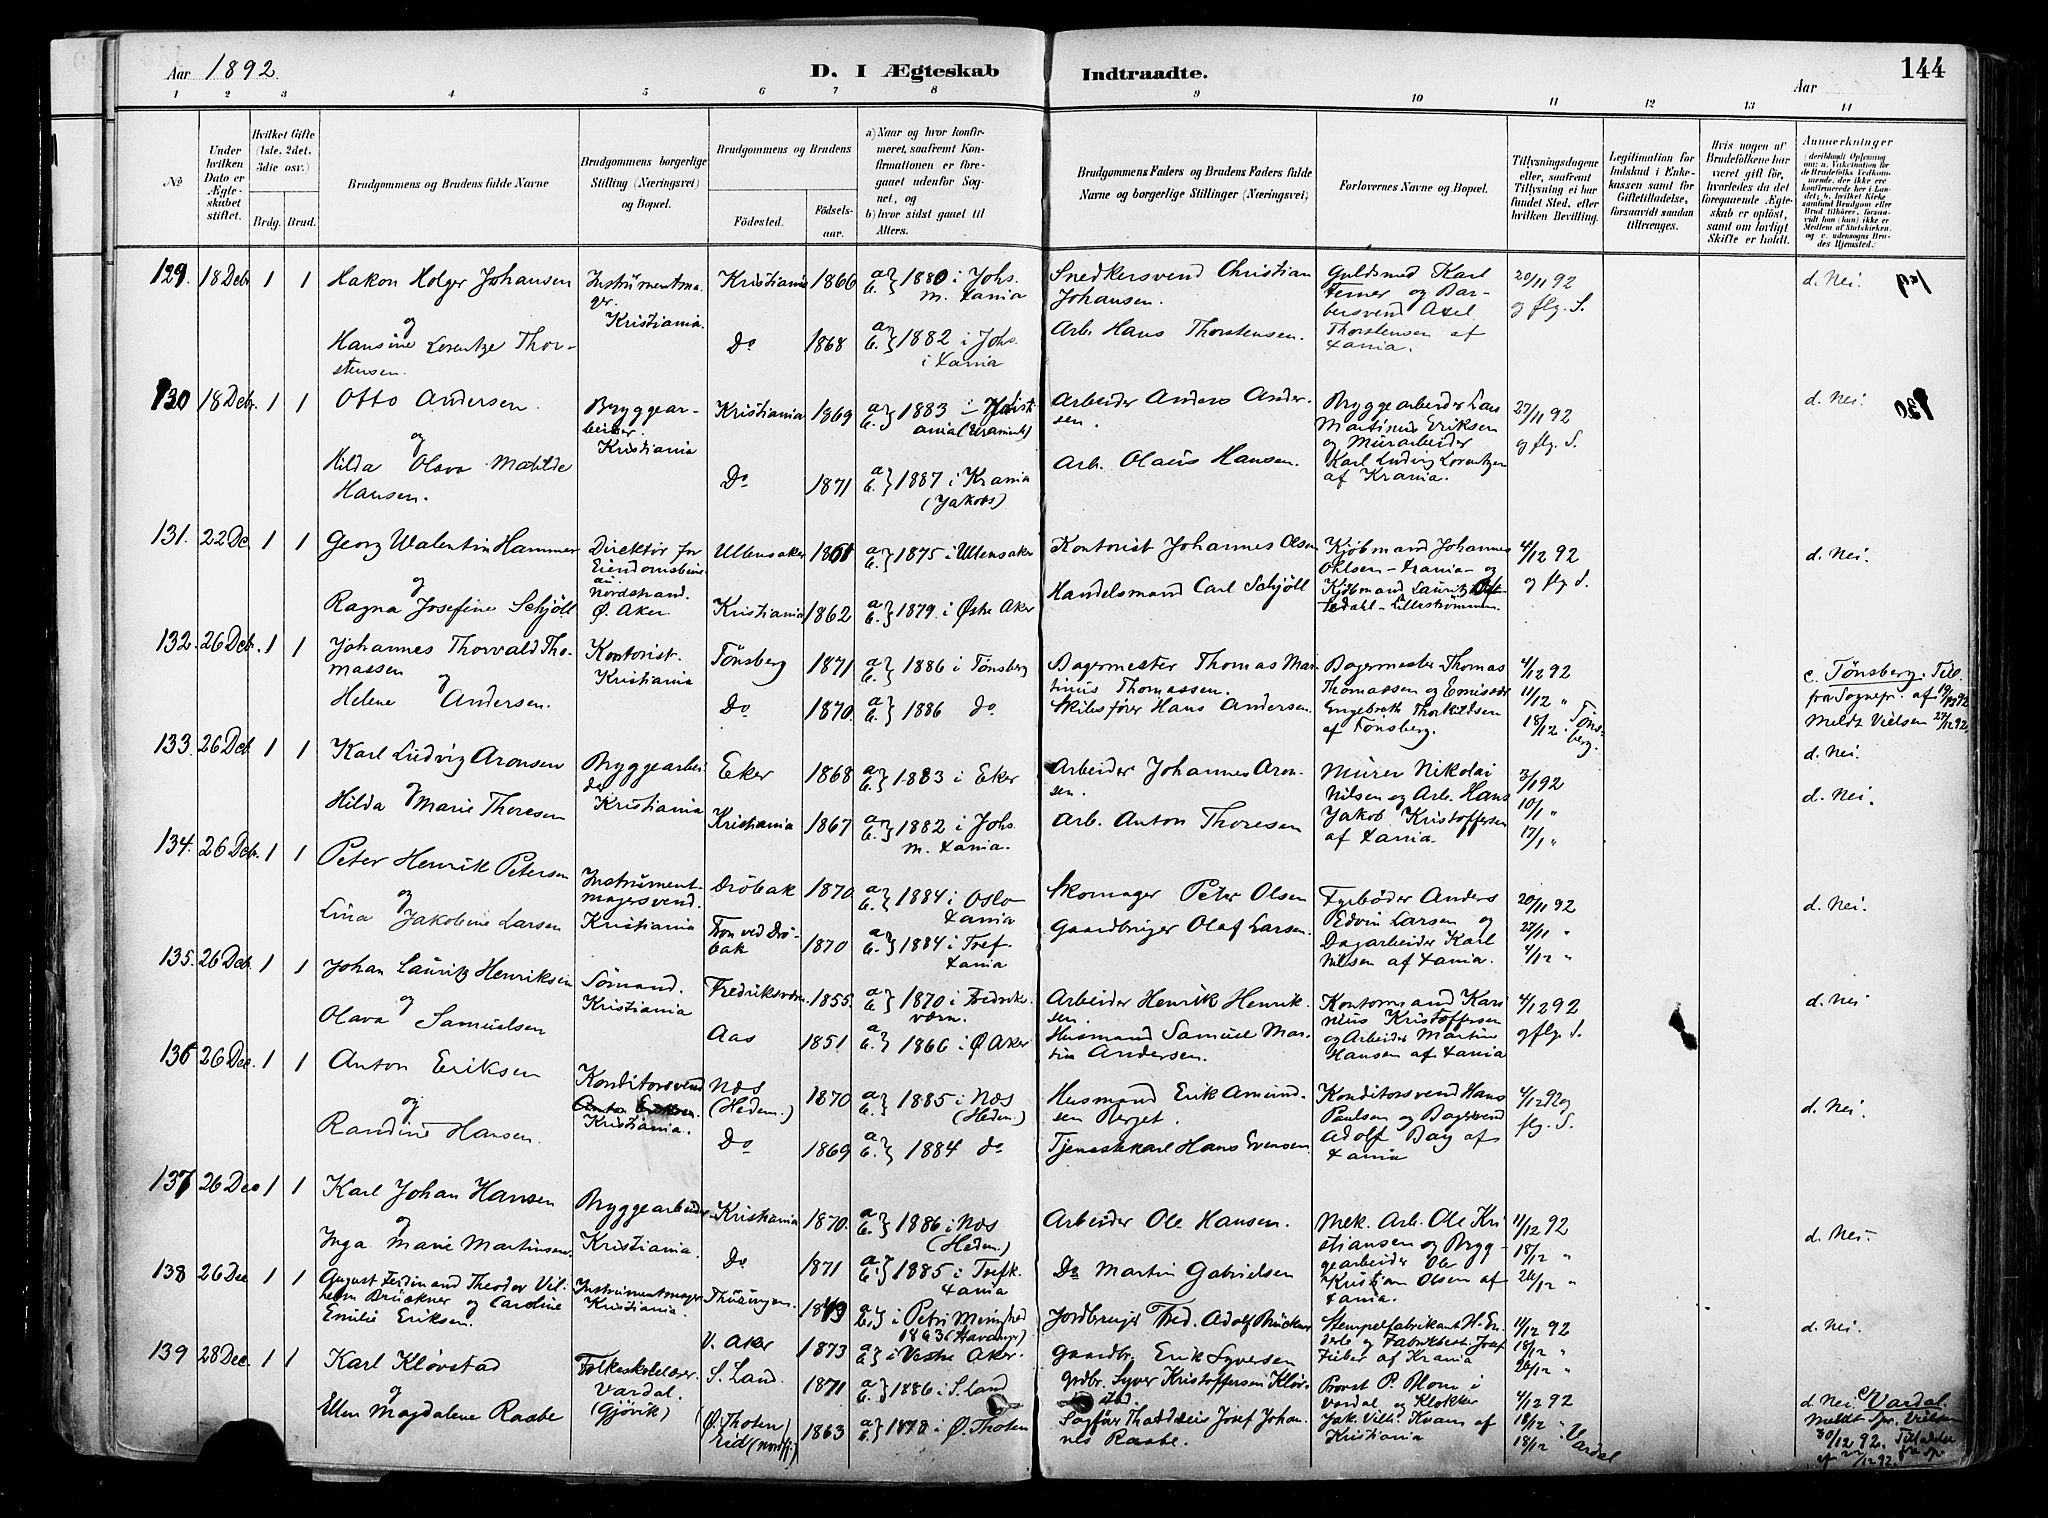 Aar 1892.
D. I Ægteskab Indtraadte.
Aar
144
1 2 3 4 5 6 7 8 9 10 11 12 13 14
No
Under hvilken Dato er Ægteskabet stiftet.
Hvilket Gifte (1ste, 2det, 3die osv.)
Brdg. Brud.
Brudgommens og Brudens fulde Navne
Brudgommens borgerlige Stilling (Næringsvei) og Bopæl.
Brudgommens og Brudens
Fødested. Fødselsaar.
a) Naar og hvor konfirmeret, saafremt Konfirmationen er foregaaet udenfor Sognet, og
b) hvor sidst gaaet til Alters.
Brudgommens Faders og Brudens Faders fulde Navne og borgerlige Stillinger (Næringsvei)
Forlovernes Navne og Bopæl.
Tillysningsdagene eller, saafremt Tillysning ei har fundet Sted, efter hvilken Bevilling.
Legitimation for Indskud i Enkekassen samt for Giftetilladelse, forsaavidt saadan tiltrænges.
Hvis nogen af Brudefolkene har været gift før, hvorledes da det foregaaende Ægteskab er opløst, samt om lovligt Skifte er holdt.
Anmerkninger
129. 18 Debr 1 1 Hakon Holger Johansen Instrümentmager. Kristiania. Kristiania 1866 a b. } 1880 i Johs. m. Xania Snedkersvend Christian Johansen. Guldsmed Karl Ferner og Barbersvend Axel Thorstensen af Xania. 20/11 92 og flg. S. d. Nei.
og
Hansine Lorentze Thorstensen. Do 1868 a b. } 1882 i Johs. i Xania Arb. Hans Thorstensen.
130 18 Debr. 1 1 Otto Andersen. Bryggearbeider. Kristiania Kristiania 1869 a b. } 1883 Arbeider Anders Andersen. Bryggearbeider Lars Martinus Eriksen og Mürarbeider Karl Ludvig Lorentzen af Krania. 27/11 92 og flg. S. d. Nei. 130
og
Hilda Olava Matilde Hansen. Do 1871 a b. } 1887 i Krania (Jakobs) Arb. Olaüs Hansen.
131. 22 De 1 1 Georg Valentin Hammer Direktör for Eiendomsbüreau. Nordstrand. Ø. Aker Ullensaker 1861 a b. } 1875 i Ullensaker Kontorist Johannes Olsen Kjöbmand Johannes Ohlsen - Xrania - og Kjöbmand Lauritz - Lillestrømmen. 4/12 92 og flg. S. d. Nei.
og
Ragna Josefine Schjöll Kristiania 1862 a b. } 1879 i Østre Aker Handelsmand Carl Schjöll
132. 26 Debr. 1 1 Johannes Thorvald Thomassen Kontorist. Kristiania Tönsberg 1871 a b. } 1886 i Tönsberg Bagermester Thomas Martinüs Thomassen. Bagermester Thomas Thomassen og Engebreth Thorkildsen af Tönsberg. 4/12 92 11/12 " 18/12 . Tönsberg. c. Tønsberg. Till. fra Sognepr. af 19/12 92 Meldt Vielsen 27/12 92.
og
Helene Andersen. Do 1870 a b. } 1886 do Skibsförer Hans Andersen.
133. 26 Deb. 1 1 Karl Ludvig Aronsen Bryggearbeider Kristiania Eker 1868 a b. } 1883 i Eker Arbeider Johannes Aronsen. Mürer Nikolai Nilsen og Arb. Hans Jakob Kristoffersen af Xania. 3/1 92 10/1 " 17/1 " d. Nei.
og
Hilda Marie Thoresen Kristiania 1867 a b. } 1882 i Johs. m. Xania. Arb. Anton Thoresen d. Nei.
134. 26 Debr. 1 1 Peter Henrik Petersen Instrümentmagersvend. Kristiania Dröbak 1870 a b. } 1884 i Oslo Xania Skomager Peter Olsen Fyrböder Anders Edvin Larsen og Dagarbeider Karl Nilsen af Xania. 20/11 92 27/11 " 4/12 " d. Nei.
og
Lina Jakobine Larsen Fron ved Dröbak 1870 a b. } 1884 i Tref. Xania Gaardbruger Olaf Larsen.
135. 26 Deb. 1 1 Johan Lauritz Henriksen Sömand. Kristiania Fredriksværn. 1855. a b. } 1870 i Fredriksværn. Arbeider Henrik Henriksen. Kontormand Karinius Kristoffersen og Arbeider Martin Hansen af Xania 4/12 92 og flg. S. d. Nei
og
Olava Samuelsen Aas 1851 a b. } 1866 i Ø Aker Husmand Samuel Martin Andersen.
136 26 Dec. 1 1 Anton Eriksen Konditorsvend Kristiania. Næs (Hedem.) 1870 a b. } 1885 i Næs (Hedem.) Husmand Erik Amundsen Berget. Konditorsvend Hans Paulsen og Bagersvend Adolf Bay af Xania 4/12 92 og flg. S. d. Nei.
og
Randine Hansen. Do 1869 a b. } 1884 do Tjenestekarl Hans Evensen
137 26 Dec 1 1 Karl Johan Hansen Bryggearbeider Kristiania. Kristiania 1870. a b. } 1886 i Næs (Hedem.) Arbeider Ole Hansen. Mek. Arb. Ole Kristiansen og Bryggearbeider Ole Kristian Olsen af Xania. 11/12 92 18/12 " 26/12 " d. Nei.
og
Inga Marie Martinsen. Do 1871 a b. } 1885 i Trefk. Xania Do Martin Gabrielsen
138 26 Dec 1 1 August Ferdinand Theodor Vilhelm Brückner og Caroline Emilie Eriksen. Instrümentmager Kristiania. Thüringen. a b. } i Petri Menighed 1863 Jordbruger Fred. Adolf Brückner Stempelfabrikant H. Enderle og Fabrikbest. Josef Fieber af Krania 11/12 92 18/12 " 26/12 " d. Nei.
V. Aker 1873 a b. } i Vestre Aker. Gaardbr. Erik Syversen
139 28 Dec. 1 1 Karl Kløvstad Folkeskolelærer Vardal. (Gjövik) S. Land. 1871 a b. } 1886 i S. Land Grdbr. Syver Kristoffersen Kløvstad. Provst P. Blom i Vardal og Klokker Jak. Vilh. Kvam af Kristiania 4/12 92 11/12 18/12 . Vardal d. Nei. c. Vardal. Meldt Spr. Vielsen 30/12 92.
og
Ellen Magdalene Raabe (Ø. Thoten) Eid (Nordfj.) 1863 a b. } 1878 i Ø. Thoten Sagför Thaddeüs Josef Johannes Raabe.